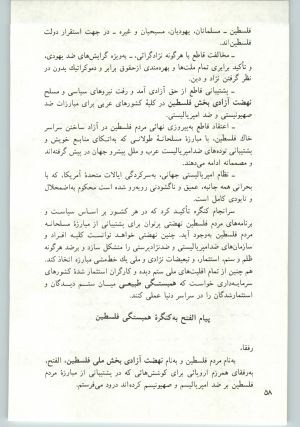 فلسطین ـ مسلمانان، یهودیان، مسیحیان و غیره ـ در جهت استقرار دولت
فلسطین‌اند.
ـ مخالفت قاطع با هرگونه نژادگرائی، ـ به‌ویژه گرایش‌های ضد یهودی،
و تأکید برابری تمام ملت‌ها و بهره‌مندی از حقوق برابر و دموکراتیک بدون در
نظر گرفتن نژاد و دین.
ـ پشتیبانی قاطع از حق آزادی آمد و رفت نیروهای سیاسی و مسلح
نهضت آزادی بخش فلسطین در کلیهٔ کشورهای عربی برای مبارزات ضد
صهیونیستی و ضد امپریالیستی.
ـ اعتقاد قاطع به‌پیروزی نهائی مردم فلسطین در آزاد ساختن سراسر
خاک فلسطین، با مبارزهٔ مسلحانهٔ طولانی که به‌اتکای منابع خویش و
پشتیبانی توده‌های ضدامپریالیست عرب و ملل پیشرو جهان در پیش گرفته‌اند
و مصممانه ادامه می‌دهند.
ـ نظام امپریالیستی جهانی، به‌سرکردگی ایالات متحدهٔ آمریکا، که با
بحرانی همه جانبه، عمیق و ناگشودنی روبه‌رو شده است محکوم به‌اضمحلال
و نابودی کامل است.
سرانجام کنگره تأکید کرد که در هر کشور بر اساس سیاست و
برنامه‌های مردم فلسطین نهضتی پرتوان برای پشتیبانی از مبارزهٔ مسلحانه
مردم فلسطین به‌وجود آید. چنین نهضتی خواهد توانست کلیه افراد و
سازمان‌های ضدامپریالیستی و ضدنژادپرستی را متشکل سازد و برضد هرگونه
ظلم و ستم، استثمار، و تبعیضات نژادی و ملی یک خط‌مشی مبارزه اتخاذ کند.
هم چنین از تمام اقلیت‌های ملی ستم دیده و کارگران استثمار شدهٔ کشورهای
سرمایه‌داری خواست که همبستگی طبیعی میان ستم دیدگان و
استثمارشدگان را در سراسر دنیا عملی کنند.
پیام الفتح به‌کنگرهٔ همبستگی فلسطین
رفقا،
به‌نام مردم فلسطین و به‌نام نهضت آزادی بخش ملی فلسطین، الفتح،
به‌رفقای همرزم اروپائی برای کوشش‌هائی که در پشتیبانی از مبارزهٔ مردم
فلسطین بر ضد امپریالیسم و صهیونیسم کرده‌اند درود می‌فرستم.
۵۸